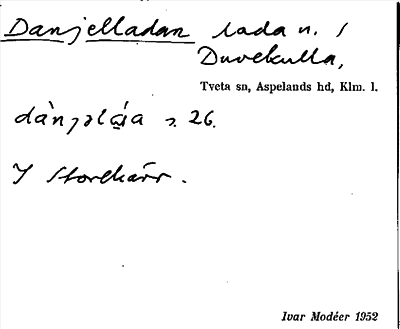 Danjelladan lada n. /
Duvekulla,
Tveta sn, Aspelands hd, Klm. l.
dànjəlá̱a s. 26.
I Storekärr.
Ivar Modéer 1952